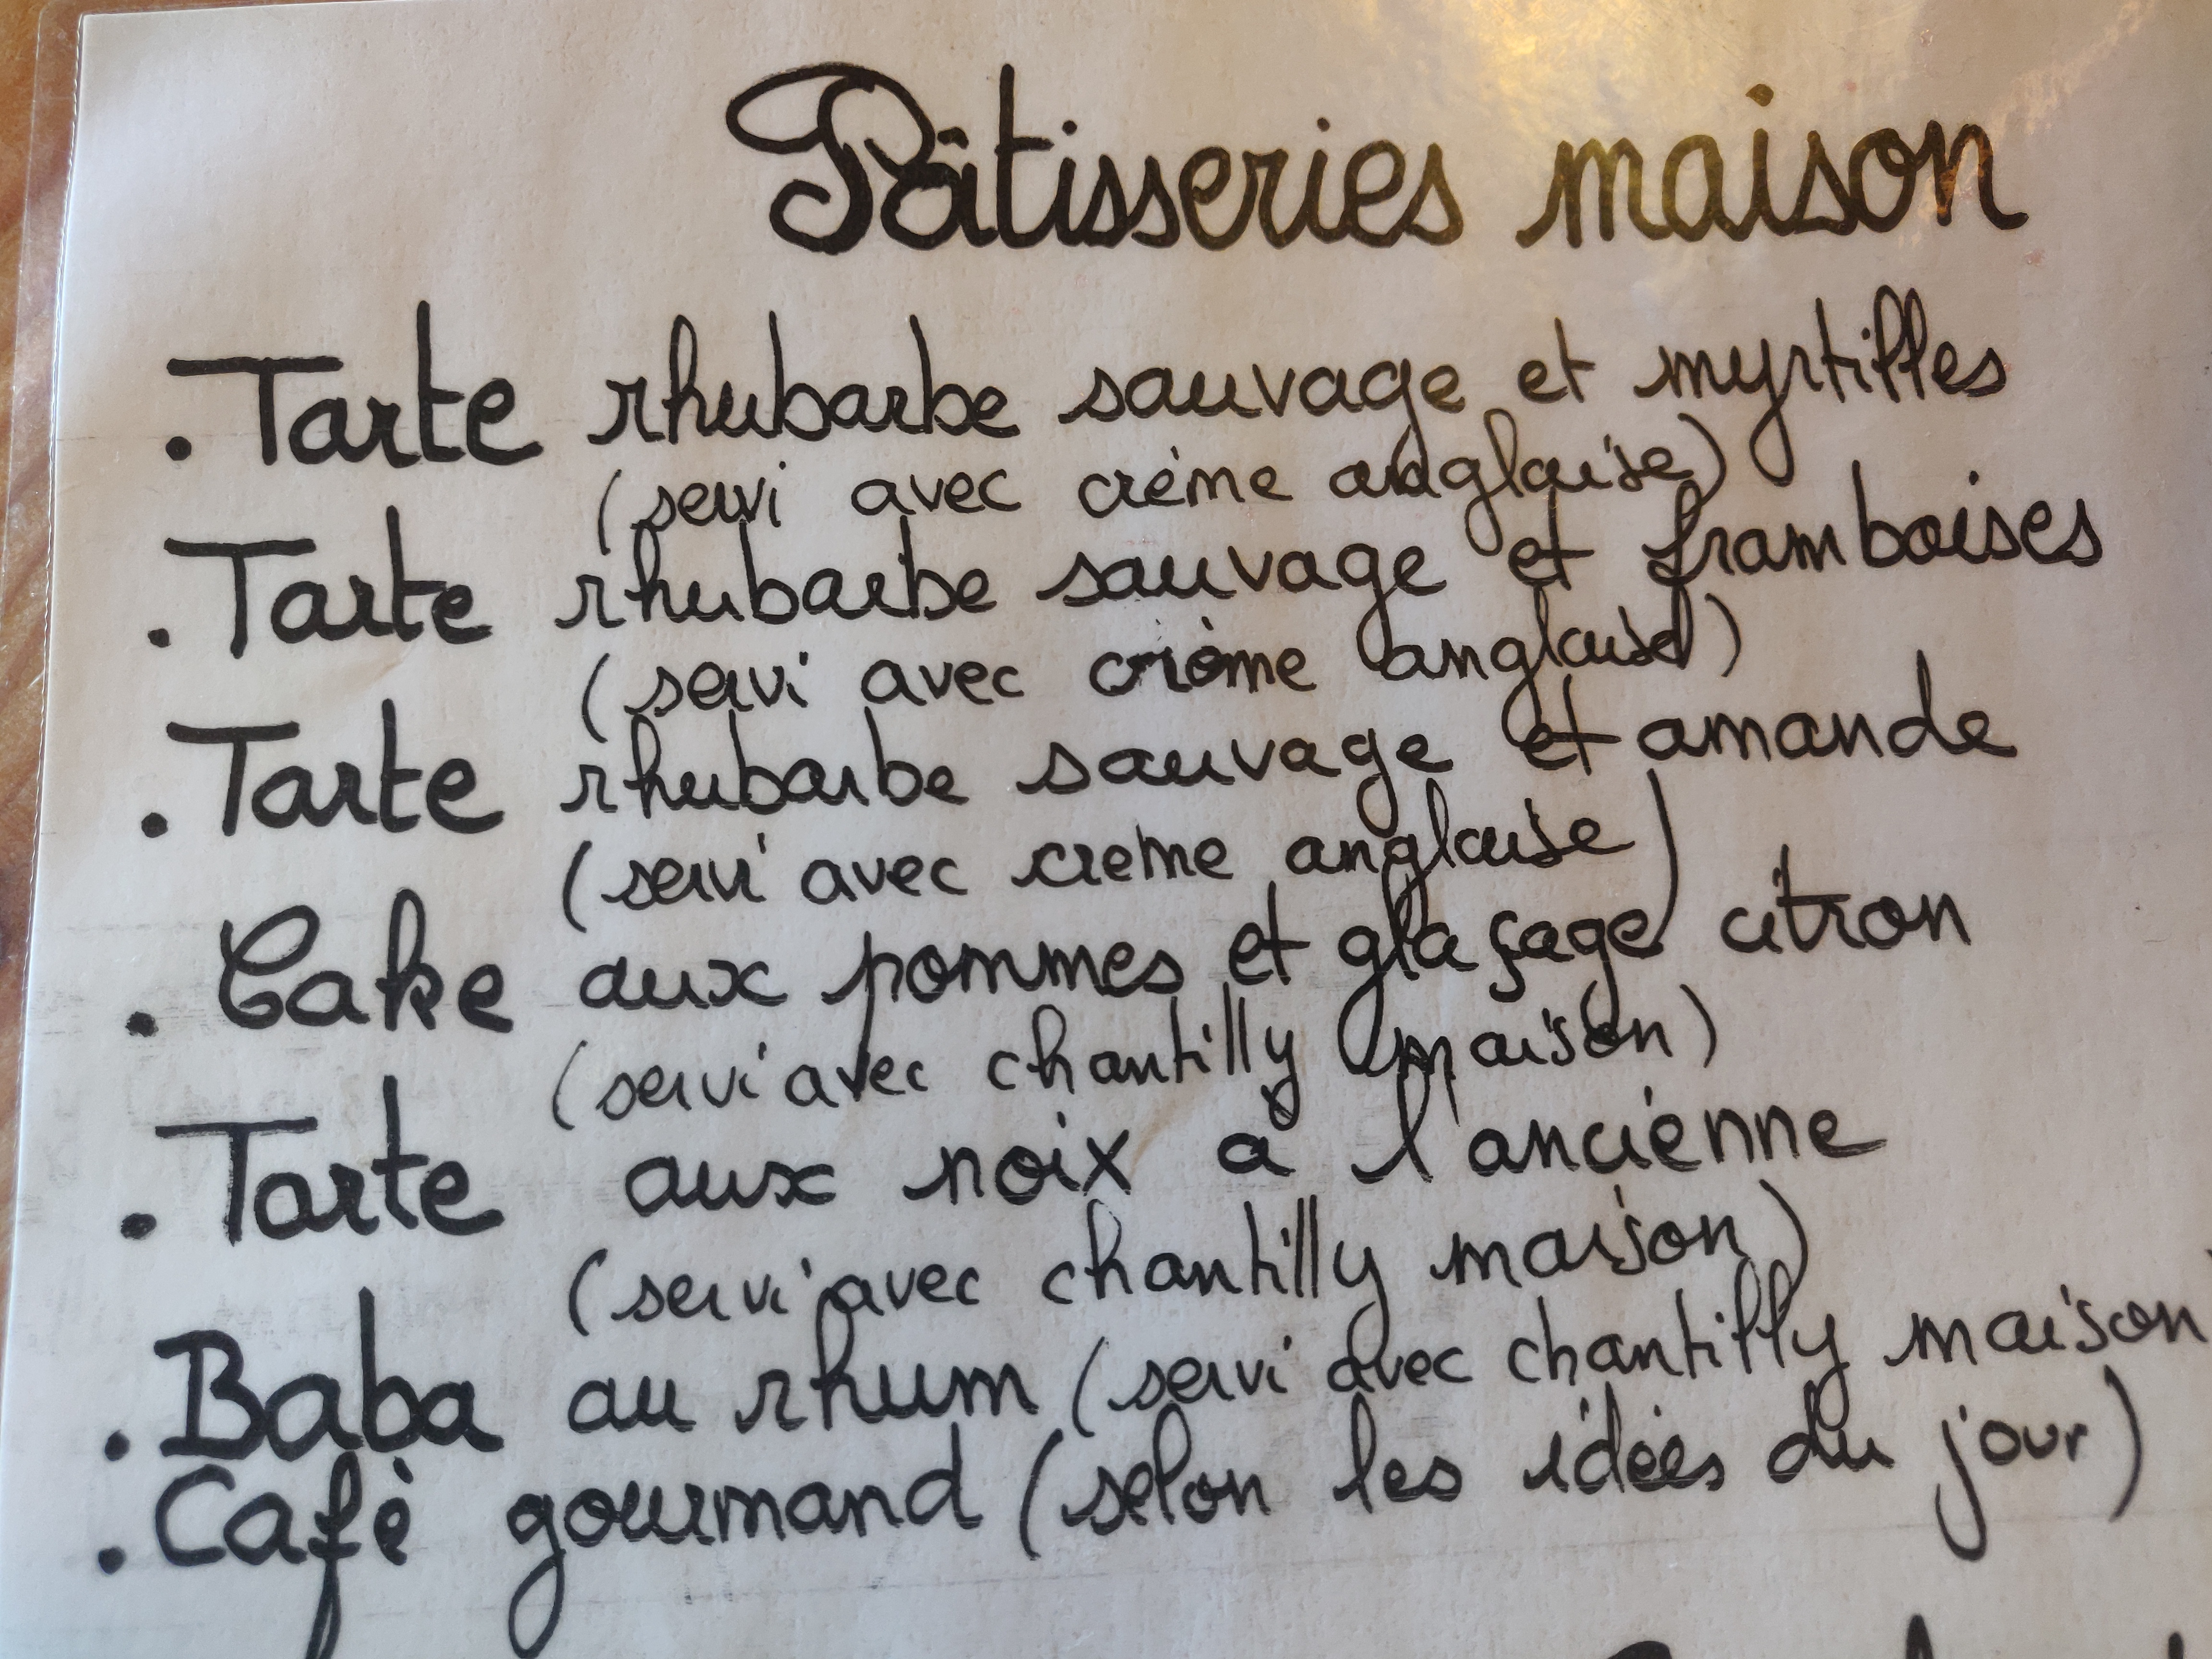 Pâtisseries maison
. Tarte rhubarbe sauvage et myrtilles
(servi avec crème anglaise)
. Tarte rhubarbe sauvage et framboises
(servi avec crème anglaise)
. Tarte rhubarbe sauvage et amande
(servi avec creme anglaise)
. Cake aux pommes et glaçage citron
(servi avec chantilly maison)
. Tarte aux noix à l'ancienne
(servi avec chantilly maison)
. Baba au rhum (servi avec chantilly maison
. Café gourmand (selon les idées du jour)